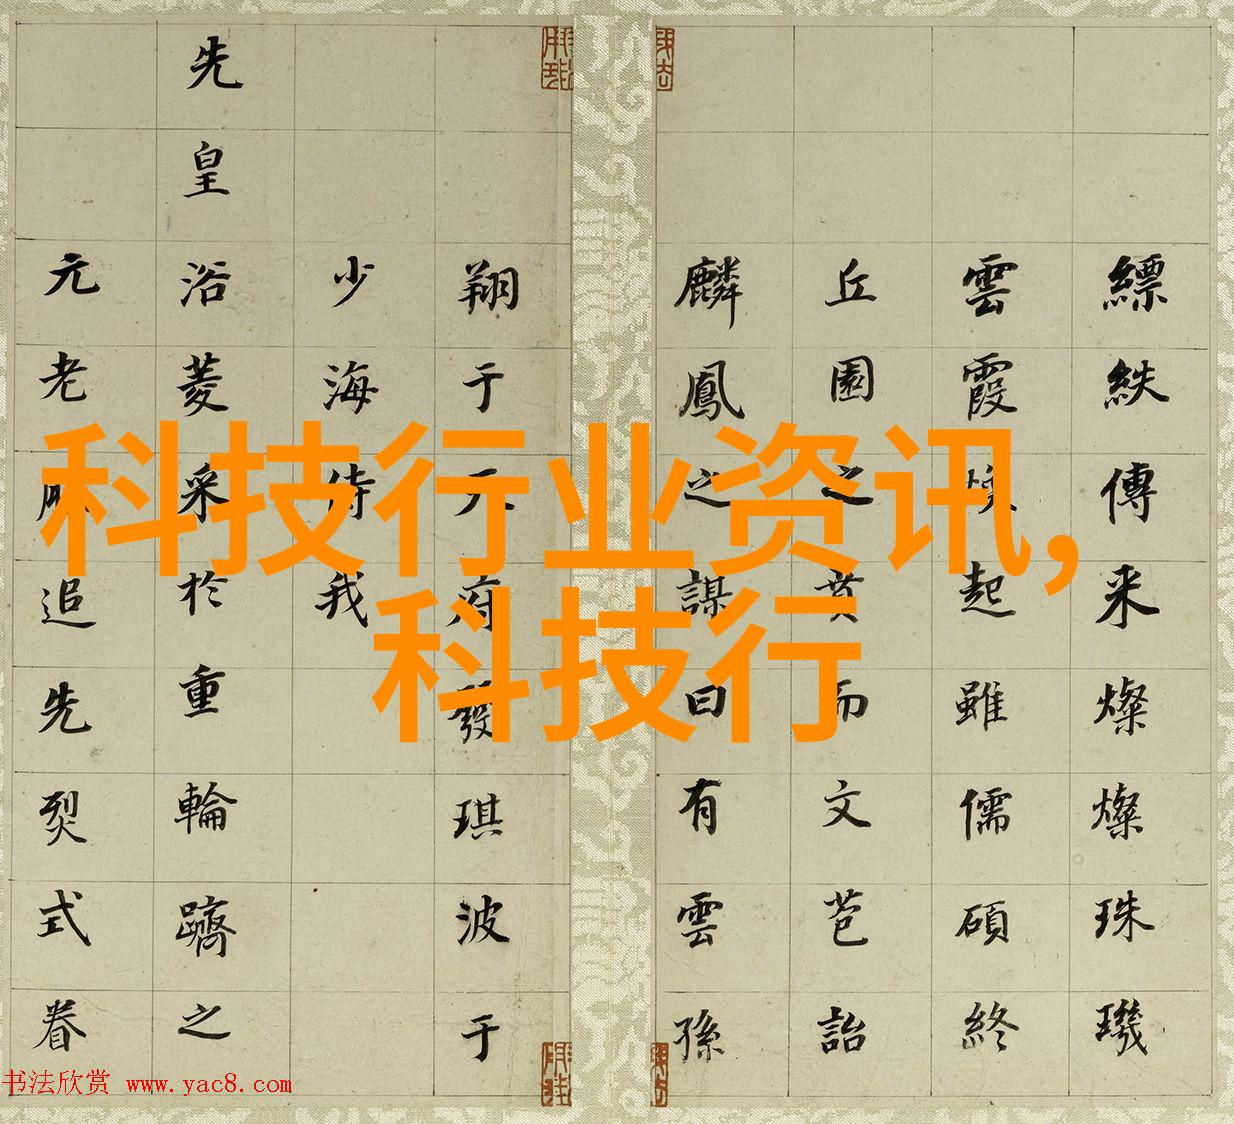 縹紩傳来燦燦珠璣
雲霞起雖儒碩終
丘園之賁而文芑詒
麟鳳之謀曰有雲孫
翔于天府發琪波于
少海侍我
先皇浴菱采於重輪躋之
元老追先烈式眷
科技行业资讯,
科技行
书法欣赏 www.yac8.com